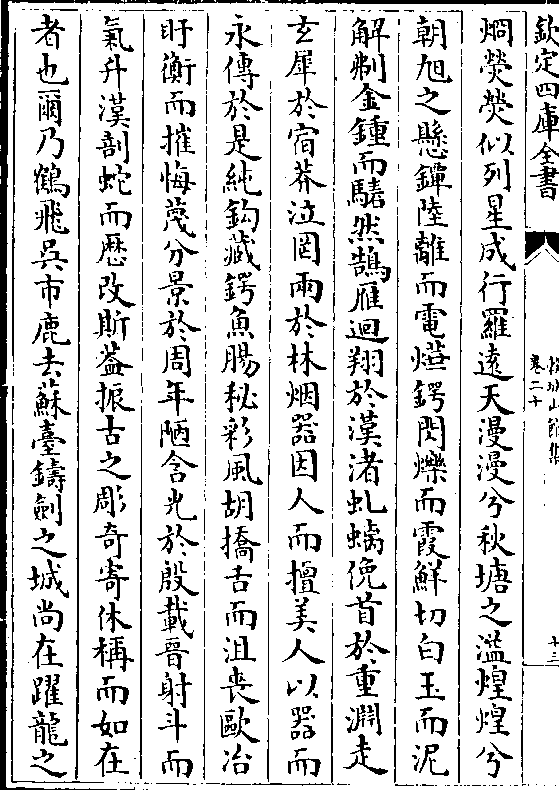 欽定四庫全書
卷二十
十三
烱熒熒似列星成行羅遠天漫漫兮秋塘之溢煌煌兮
朝旭之懸鐔陸離而電𤑽鍔閃爍而霞鮮切白玉而泥
解剸金鍾而騞然鵠雁迴翔於漢渚虬螭俛首於重淵走
玄犀於宿莽泣罔兩於林烟器因人而擅美人以器而
永傳於是純鈎藏鍔魚腸秘彩風胡撟舌而沮喪歐冶
盱衡而摧悔蔑分景於周年陋含光於殷載晉射斗而
氣升漢剖蛇而歴改斯葢振古之彫奇寄休稱而如在
者也爾乃鶴飛吳市鹿去蘇臺鑄劍之城尚在躍龍之